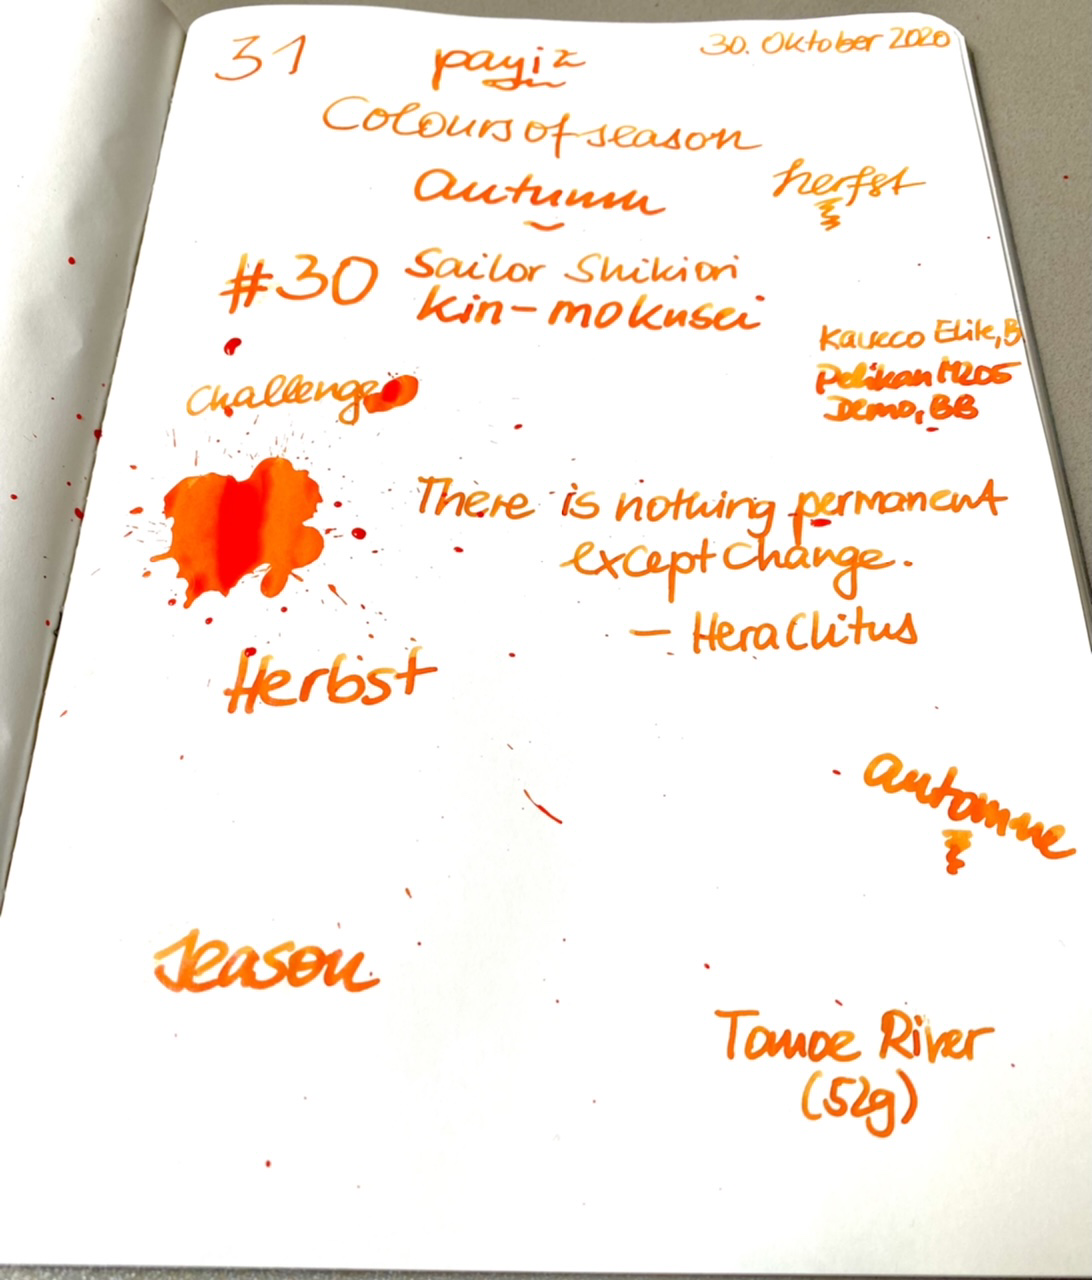 31
payiz
30. Oktober 2020
Colours of season
autumn
herfst
#30 Sailor Shikiori
kin-mokusei
Kaweco Elite, B
Pelikan M205
Demo, BB
Challenge
There is nothing permanent
except change.
— Heraclitus
Herbst
automne
season
Tomoe River
(52g)